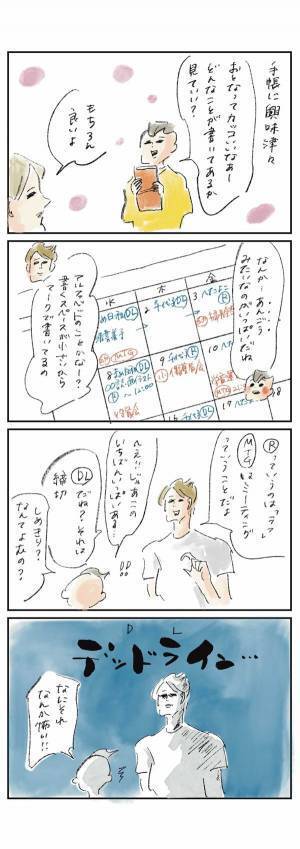 手帳に興味津々
おとなってカッコいいなぁー
どんなことが書いてあるか
見ていい？
もちろん
良いよ
なんかーあんごう
みたいなのがいっぱいだね
アルファベットのことかなー？
書くスペースが小さいから
マークで書いてるの
水
木
金
Ⓡっていうのは"ラフ"
MTGはミーティング
っていうことだよ
へえー!じゃあこの
いちばんいっぱいある…
DLだね？それは
締切
しめきり？
なんてよむの？
!!
DL
デッドライン…
なにそれ
なんか怖い!!